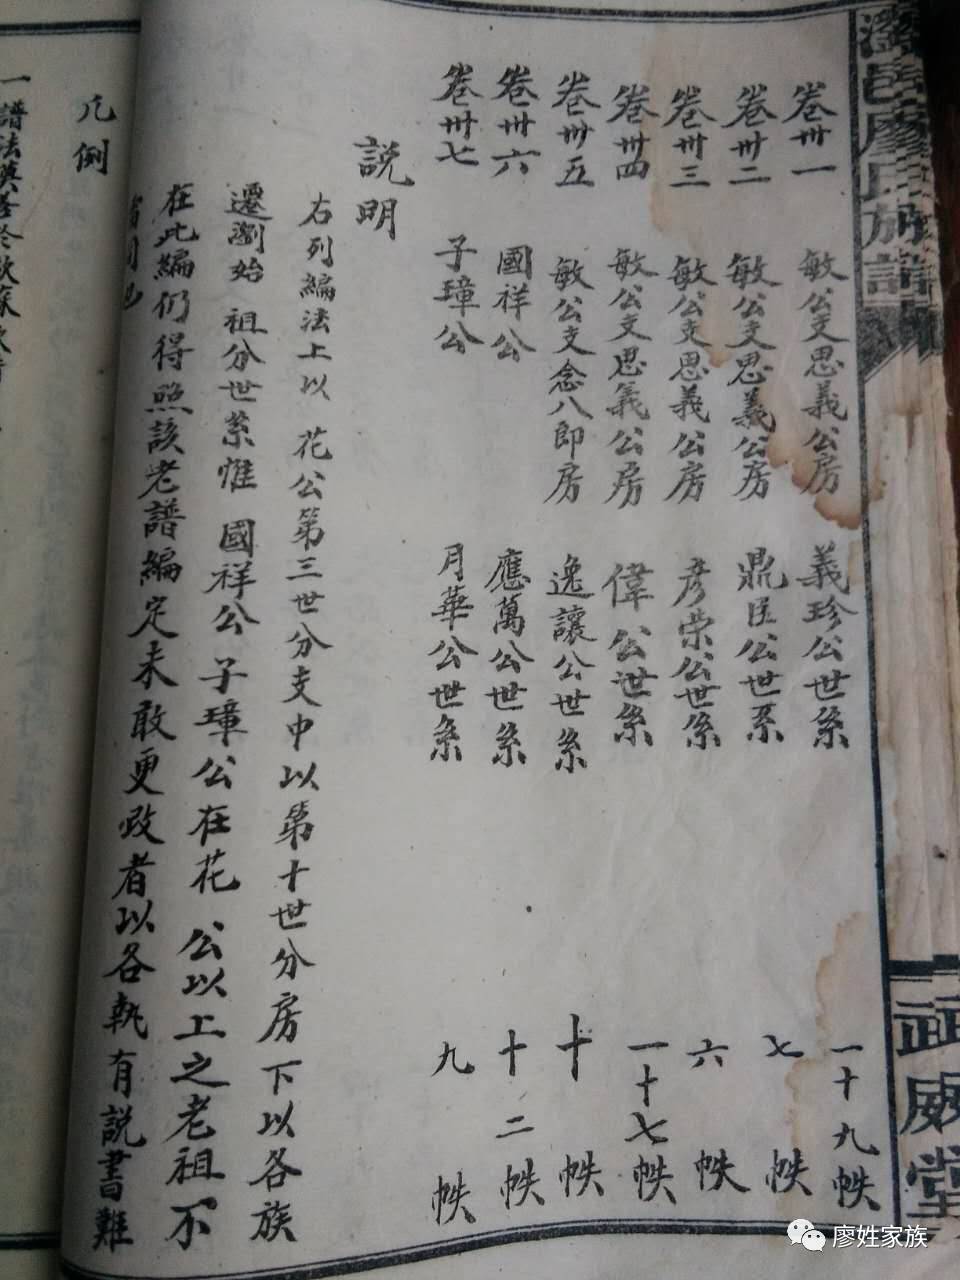 瀏邑廖氏族譜
武威堂
卷卅一 敏公支思義公房 義珍公世系 一十九帙
卷卅二 敏公支思義公房 鼎臣公世系 七帙
卷卅三 敏公支思義公房 彥榮公世系 六帙
卷卅四 敏公支思義公房 偉公世系 一十七帙
卷卅五 敏公支念八郎房 逸讓公世系 十帙
卷卅六 國祥公 應萬公世系 十二帙
卷卅七 子璋公 月華公世系 九帙
說明
右列編法上以 花公第三世分支中以第十世分房下以各族
遷瀏始 祖分世系惟 國祥公 子璋公在花 公以上之老祖不
在此編仍得照該老譜編定未敢更改者以各執有說書難
凡例
一譜法
廖姓家族